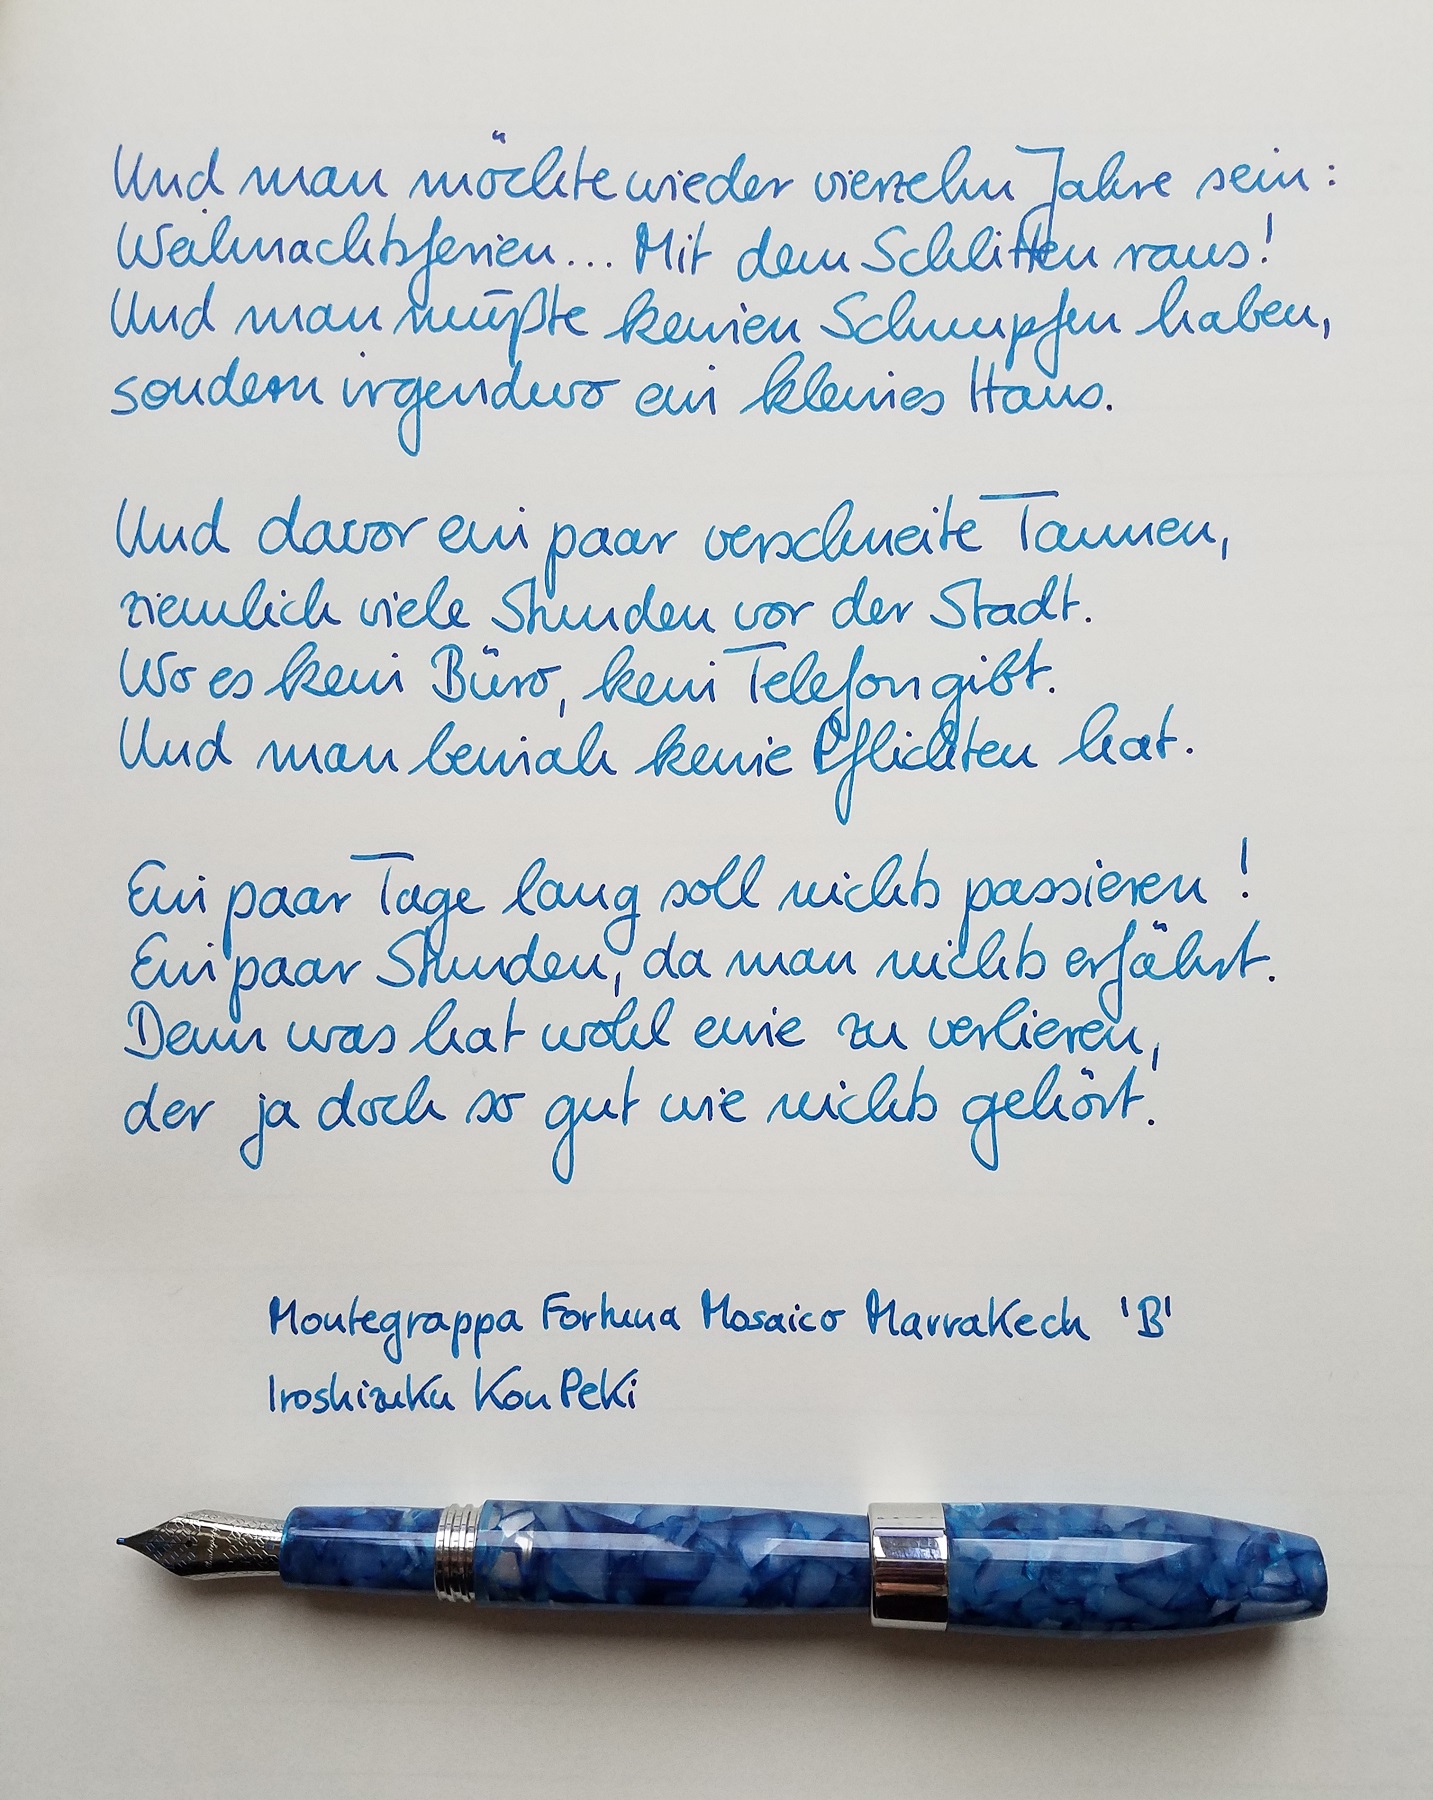 Und man möchte wieder vierzehn Jahre sein:
Weihnachtsferien... Mit dem Schlitten raus!
Und man müßte keinen Schnupfen haben,
sondern irgendwo ein kleines Haus.
Und davor ein paar verschneite Tannen,
ziemlich viele Stunden vor der Stadt.
Wo es kein Büro, kein Telefon gibt.
Und man beinah keine Pflichten hat.
Ein paar Tage lang soll nichts passieren!
Ein paar Stunden, da man nichts erfährt.
Denn was hat wohl eine zu verlieren,
der ja doch so gut wie nichts gehört.
Montegrappa Fortuna Mosaico Marrakech 'B'
Iroshizuku Kon Peki